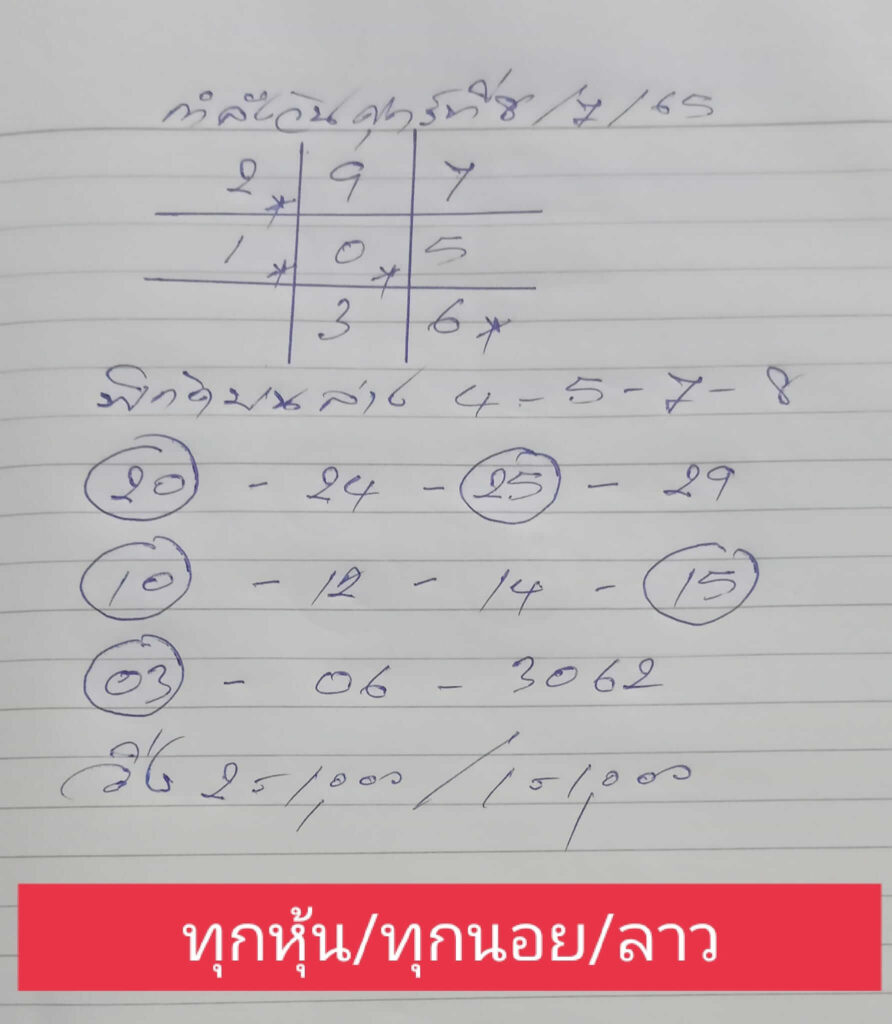 กำลังวันศุกร์ที่ 8/7/65
2 9 7
1 0 5
3 6
พิกัดบนล่าง 4-5-7-8
20 - 24 - 25 - 29
10 - 12 - 14 - 15
03 - 06 - 3062
วิ่ง 2=1,000/1=1,000
ทุกหุ้น/ทุกนอย/ลาว